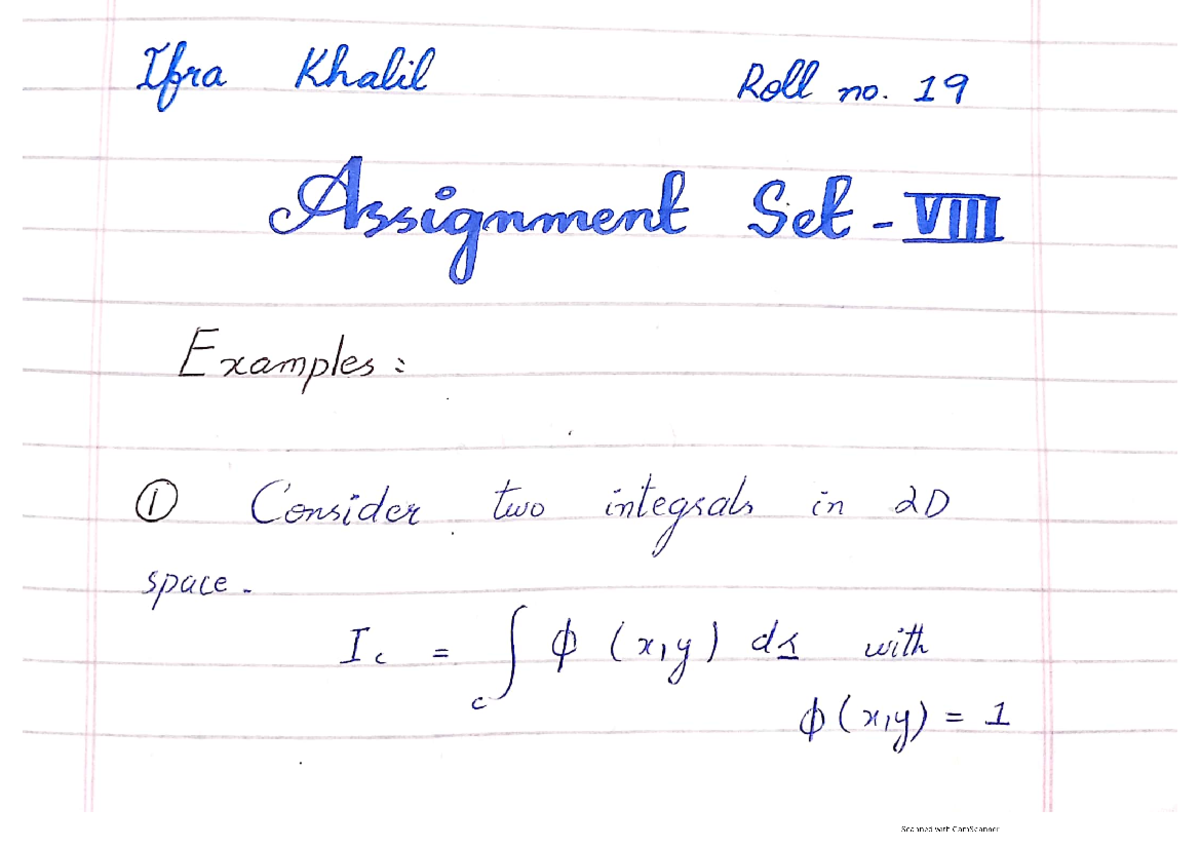 Ifra Khalil Roll no. 19
Assignment Set - VIII
Examples :
① Consider two integrals in 2D
space.
I_c = ∫_c ϕ (x,y) ds with
ϕ(x,y) = 1
Scanned with CamScanner